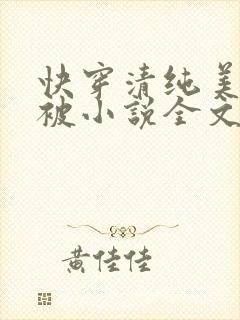 快穿清纯美
被小説全文
黄佳佳